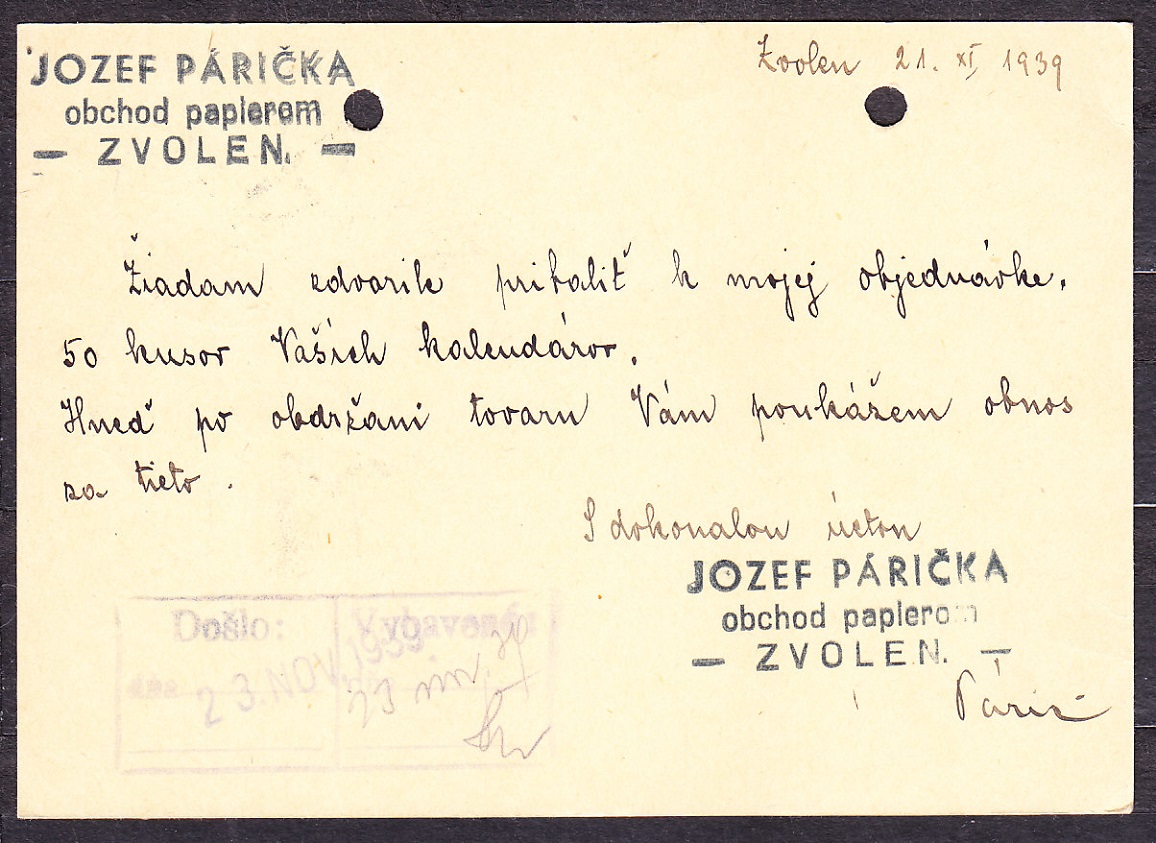 JOZEF PÁRIČKA
obchod papierom
— ZVOLEN. —
Zvolen 21. XI. 1939
Žiadam zdvorile pribaliť k mojej objednávke.
50 kusov Vašich kalendárov.
Hneď po obdržani tovaru Vám poukážem obnos
za tieto.
S dokonalou úctou
JOZEF PÁRIČKA
obchod papierom
— ZVOLEN. —
Došlo: Vybavené:
23. NOV. 1939
23